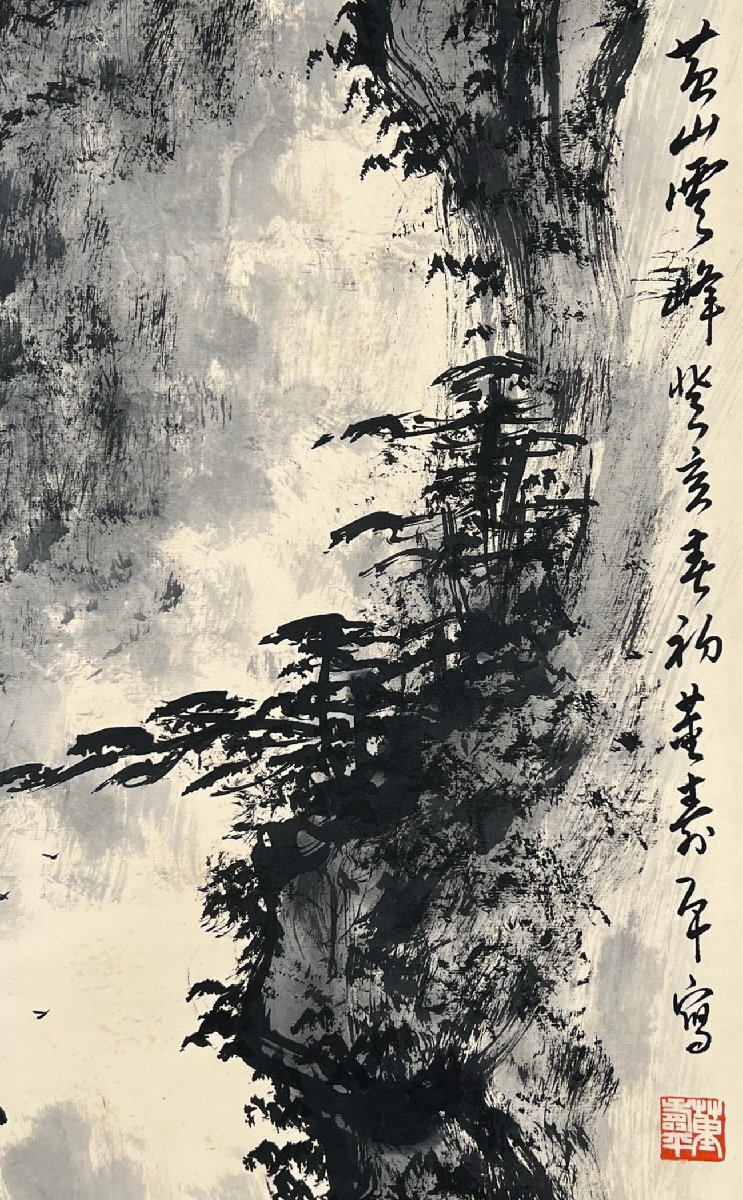 黄山雲峰癸亥春初董壽平寫
董壽平